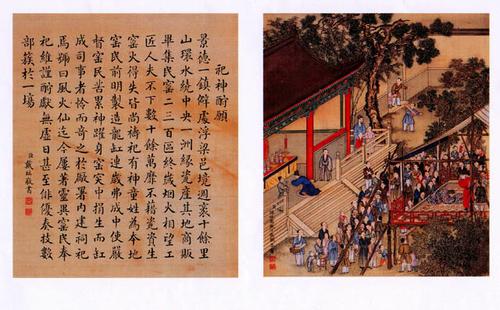 祀神酬願
景德一鎮僻處浮梁邑境週袤十餘里
山環水繞中央一洲緣瓷產其地商販
畢集民窑二三百區終歲烟火相望工
匠人夫不下數十餘萬靡不藉瓷資生
窑火得失皆尚禱祀有神童姓為今地
窑民前明製造龍缸連歲弗成中使嚴
督窑民苦累神躍身窑突中捐生而缸
成司事者憐而奇之於厰署內建祠祀
焉號曰風火仙迄今屢著靈異窑民奉
祀維謹酬獻無虛日甚至俳優奏技數
部簇於一場
臣戴臨敬書